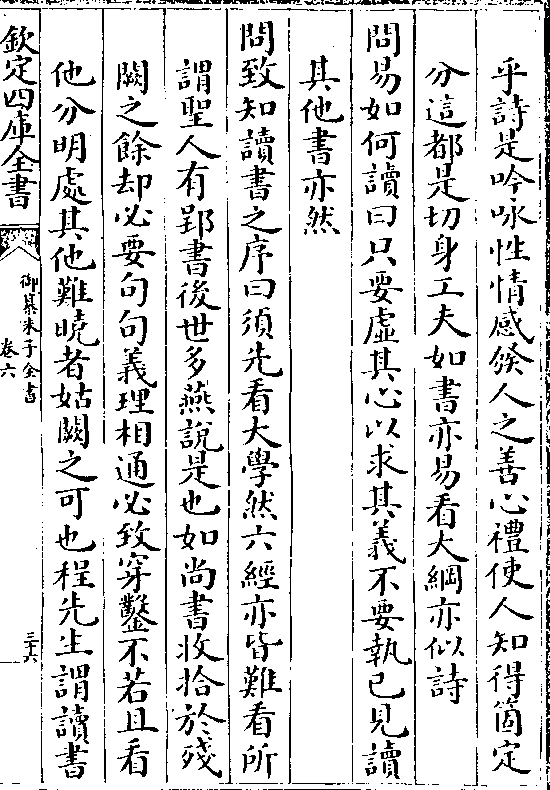 乎詩是吟咏性情感發人之善心禮使人知得箇定
分這都是切身工夫如書亦易看大綱亦似詩
問易如何讀曰只要虛其心以求其義不要執己見讀
其他書亦然
問致知讀書之序曰須先看大學然六經亦皆難看所
謂聖人有郢書後世多燕說是也如尚書收拾於殘
闕之餘却必要句句義理相通必致穿鑿不若且看
他分明處其他難曉者姑闕之可也程先生謂讀書
欽定四庫全書
御纂朱子全書
卷六
三十六